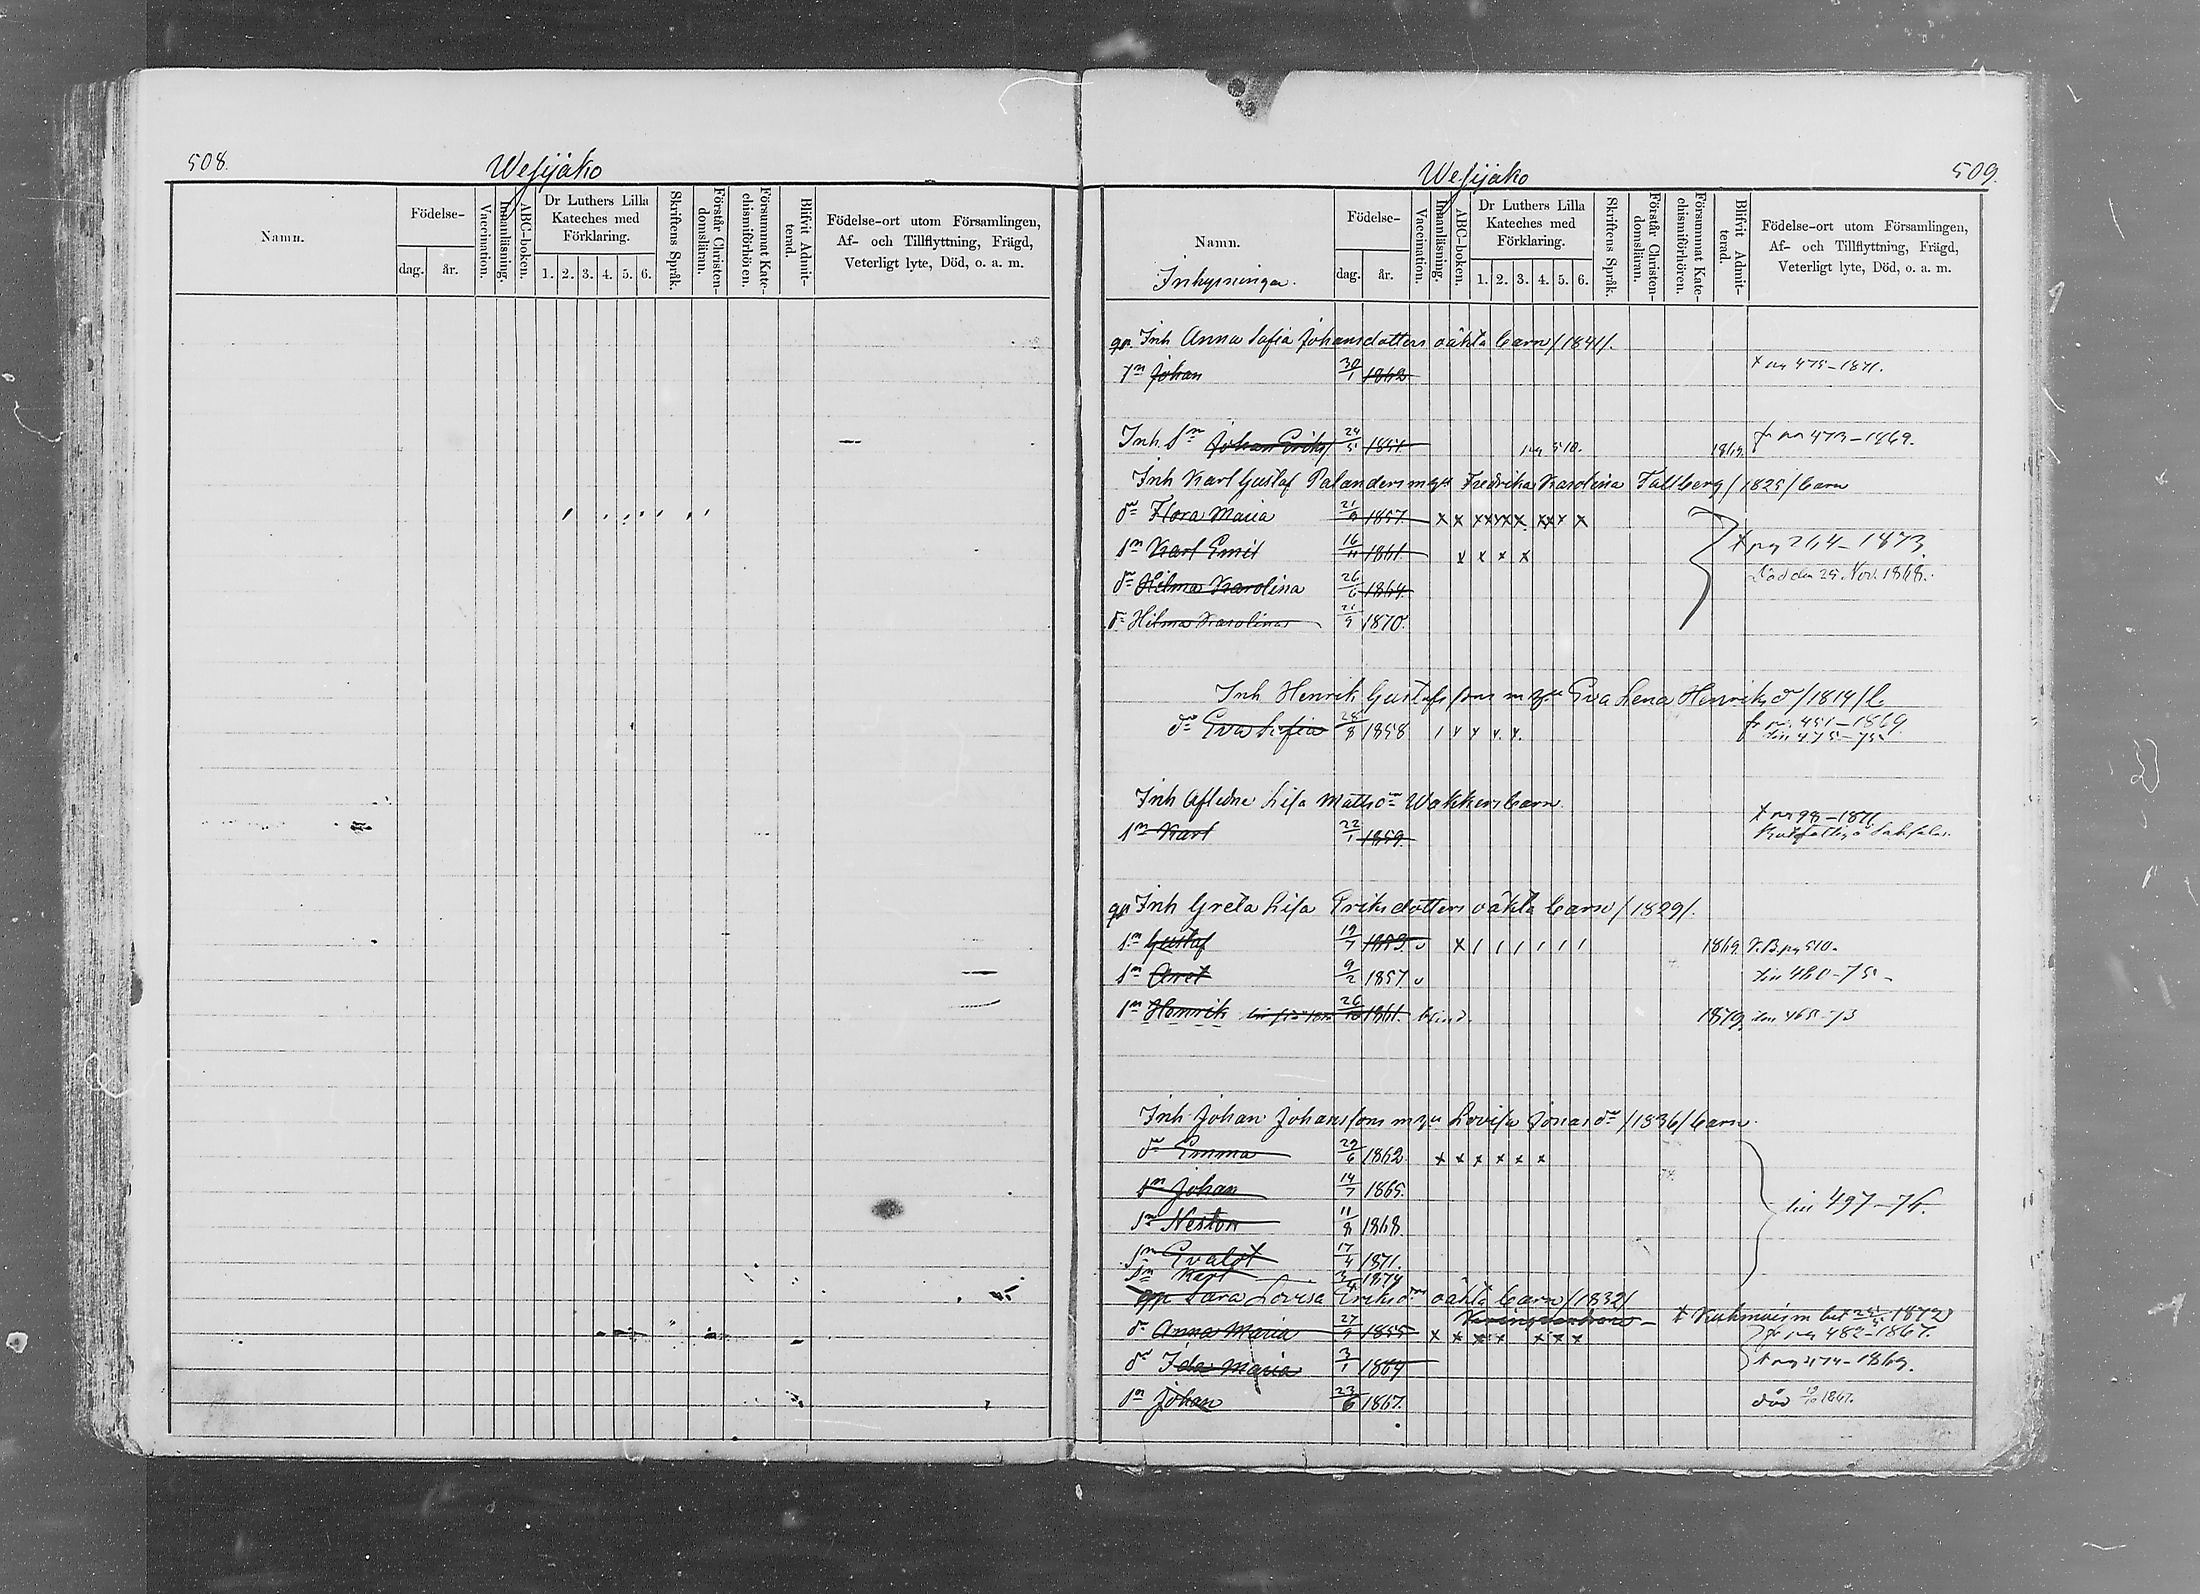 508.
Wesijako
Namn.
Födelse-
dag.
år.
Vaccination.
Innanläsning.
ABC-boken.
Dr Luthers Lilla
Kateches med
Förklaring.
1. 2. 3. 4. 5. 6.
Skriftens Språk.
Förstår Christen-
domsläran.
Försummat Kate-
chismiförhören.
Blifvit Admit-
terad.
Födelse-ort utom Församlingen,
Af- och Tillflyttning, Frägd,
Veterligt lyte, Död, o. a. m.
Wesijako
509.
Namn.
Inhysningar.
Födelse-
dag.
år.
Vaccination.
Innanläsning.
ABC-boken.
Dr Luthers Lilla
Kateches med
Förklaring.
1. 2. 3. 4. 5. 6.
Skriftens Språk.
Förstår Christen-
domsläran.
Försummat Kate-
chismiförhören.
Blifvit Admit-
terad.
Födelse-ort utom Församlingen,
Af- och Tillflyttning, Frägd,
Veterligt lyte, Död, o. a. m.
Inh Anna Sofia Johansdotters oäkta barn /1841/.
Sn Johan 30/1 1862 475-1871.
Inh. Sn Johan Eriks 24/5 1851. pag 510. 1869. fr pag 473-1869.
Inh Karl Gustaf Palanders m hu Fredrika Karolina Tallberg /1825/ barn
dr Flora Maria 21/8 1857 x x x x x x x x x x
sn Karl Emil 16/11 1861 x x x x pag 264-1873
dr Hilma Karolina 26/6 1864 Död den 25 Nov. 1868.
dr Hilma Karolina 21/9 1870
Inh Henrik Gustafssons m hu Eva Lena Henriksdr /1814/ b
dr Eva Sofia 28/8 1858 fr pag. 451-1869
till 475-75
Inh Aflidne Lisa Mattsdr Wakkers barn
sn Karl 22/1 1859. 98-1871
Inh Greta Lisa Eriksdotters oäkta barn /1829/.
sn Gustaf 19/7 1853. v x / / / / / / 1869 pag 510.
sn Anet 9/2 1857 v till 480-75
sn Henrik 26/10 1861. blind. 1879. till 465-73
Inh Johan Johanssons m hu Lovisa Jonasdr /1836/ barn
dr Emma 29/6 1862 x x x x x x
sn Johan 14/7 1865. till 497-76.
sn Nestor 11/8 1868.
sn Evald 17/4 1871.
sn Karl 1874
Sara Lovisa Eriksdrs oäkta barn /1832/
dr Anna Maria 27/9 1855 x x x x x x x Kuhmois 1872
fr pag 482-1867.
dr Ida Maria 3/1 1864 pag 474-1869.
sn Johan 23/6 1867. död 19/10 1867.